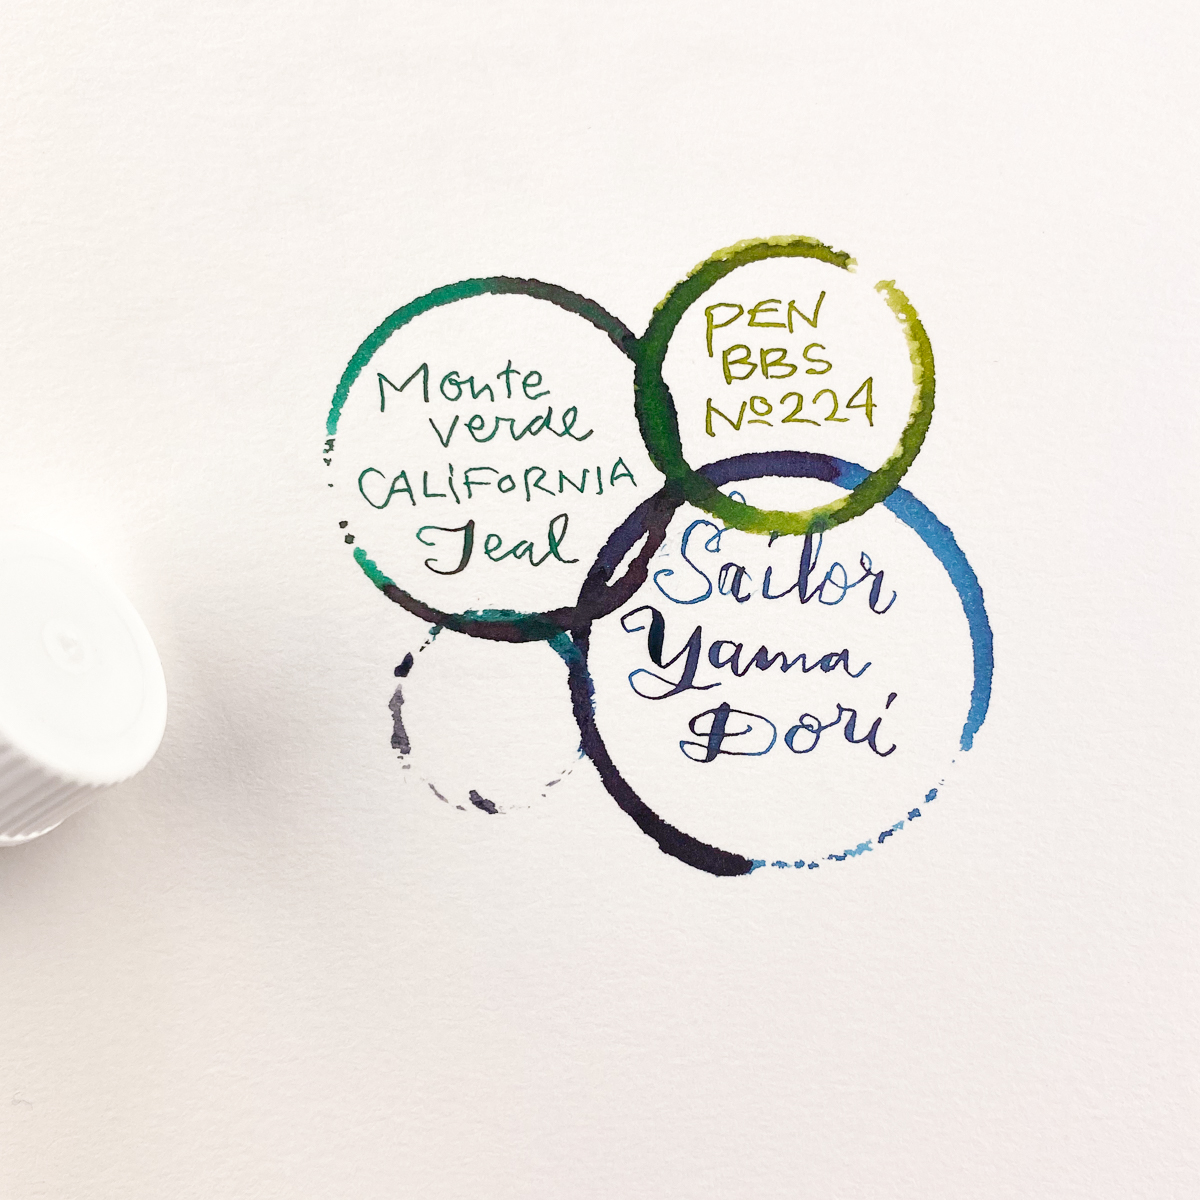 Monte
verde
CALiFORNIA
Teal
PEN
BBS
Nº224
Sailor
Yama
Dori